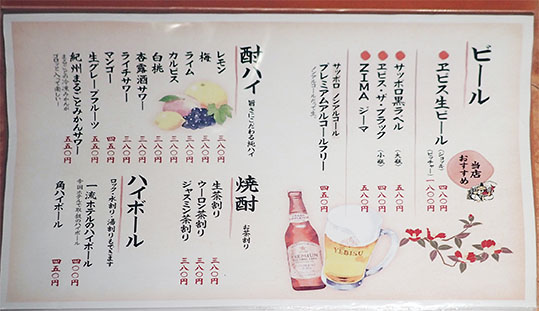 ビール
当店
おすすめ
ヱビス生ビール
(ジョッキ) 四八〇円
(ピッチャー) 一八〇〇円
サッポロ黒ラベル (大瓶) 五八〇円
ヱビス・ザ・ブラック (小瓶) 四八〇円
ZIMA ジーマ 五八〇円
サッポロノンアルコール
プレミアムアルコールフリー 四五〇円
ノンアルコールビール
YEBISU
酎ハイ 旨さにこだわる純ハイ
レモン 三八〇円
梅 三八〇円
ライム 三八〇円
カルピス 三八〇円
白桃 三八〇円
杏露酒サワー 三八〇円
ライチサワー 三八〇円
マンゴー 四五〇円
生グレープフルーツ 五五〇円
紀州まるごとみかんサワー 五五〇円
まるごとの冷凍みかんが
ゴロッと入って楽しい!
焼酎 お茶割り
生茶割り 三八〇円
ウーロン茶割り 三八〇円
ジャスミン茶割り 三八〇円
ハイボール
ロック・水割り・湯割りもできます
一流ホテルのハイボール 四〇〇円
帝国ホテルで取扱のハイボール
角ハイボール 四五〇円